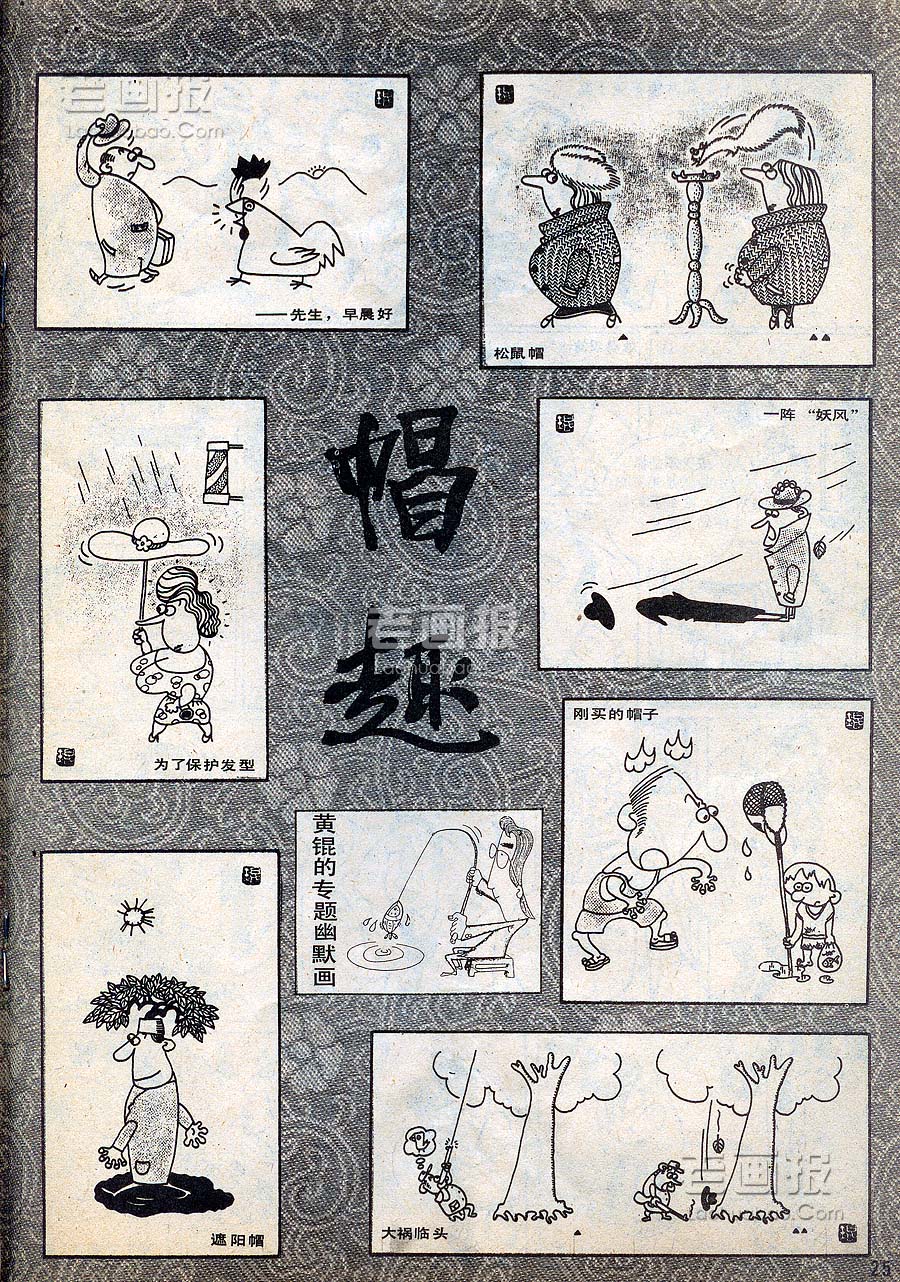 老画报
LaoHuaBao.Com
——先生，早晨好
松鼠帽
▲
▲▲
帽趣
为了保护发型
一阵“妖风”
老画报
LaoHuaBao.Com
刚买的帽子
黄锟的专题幽默画
遮阳帽
大祸临头
▲
▲▲
老画报
LaoHuaBao.Com
25